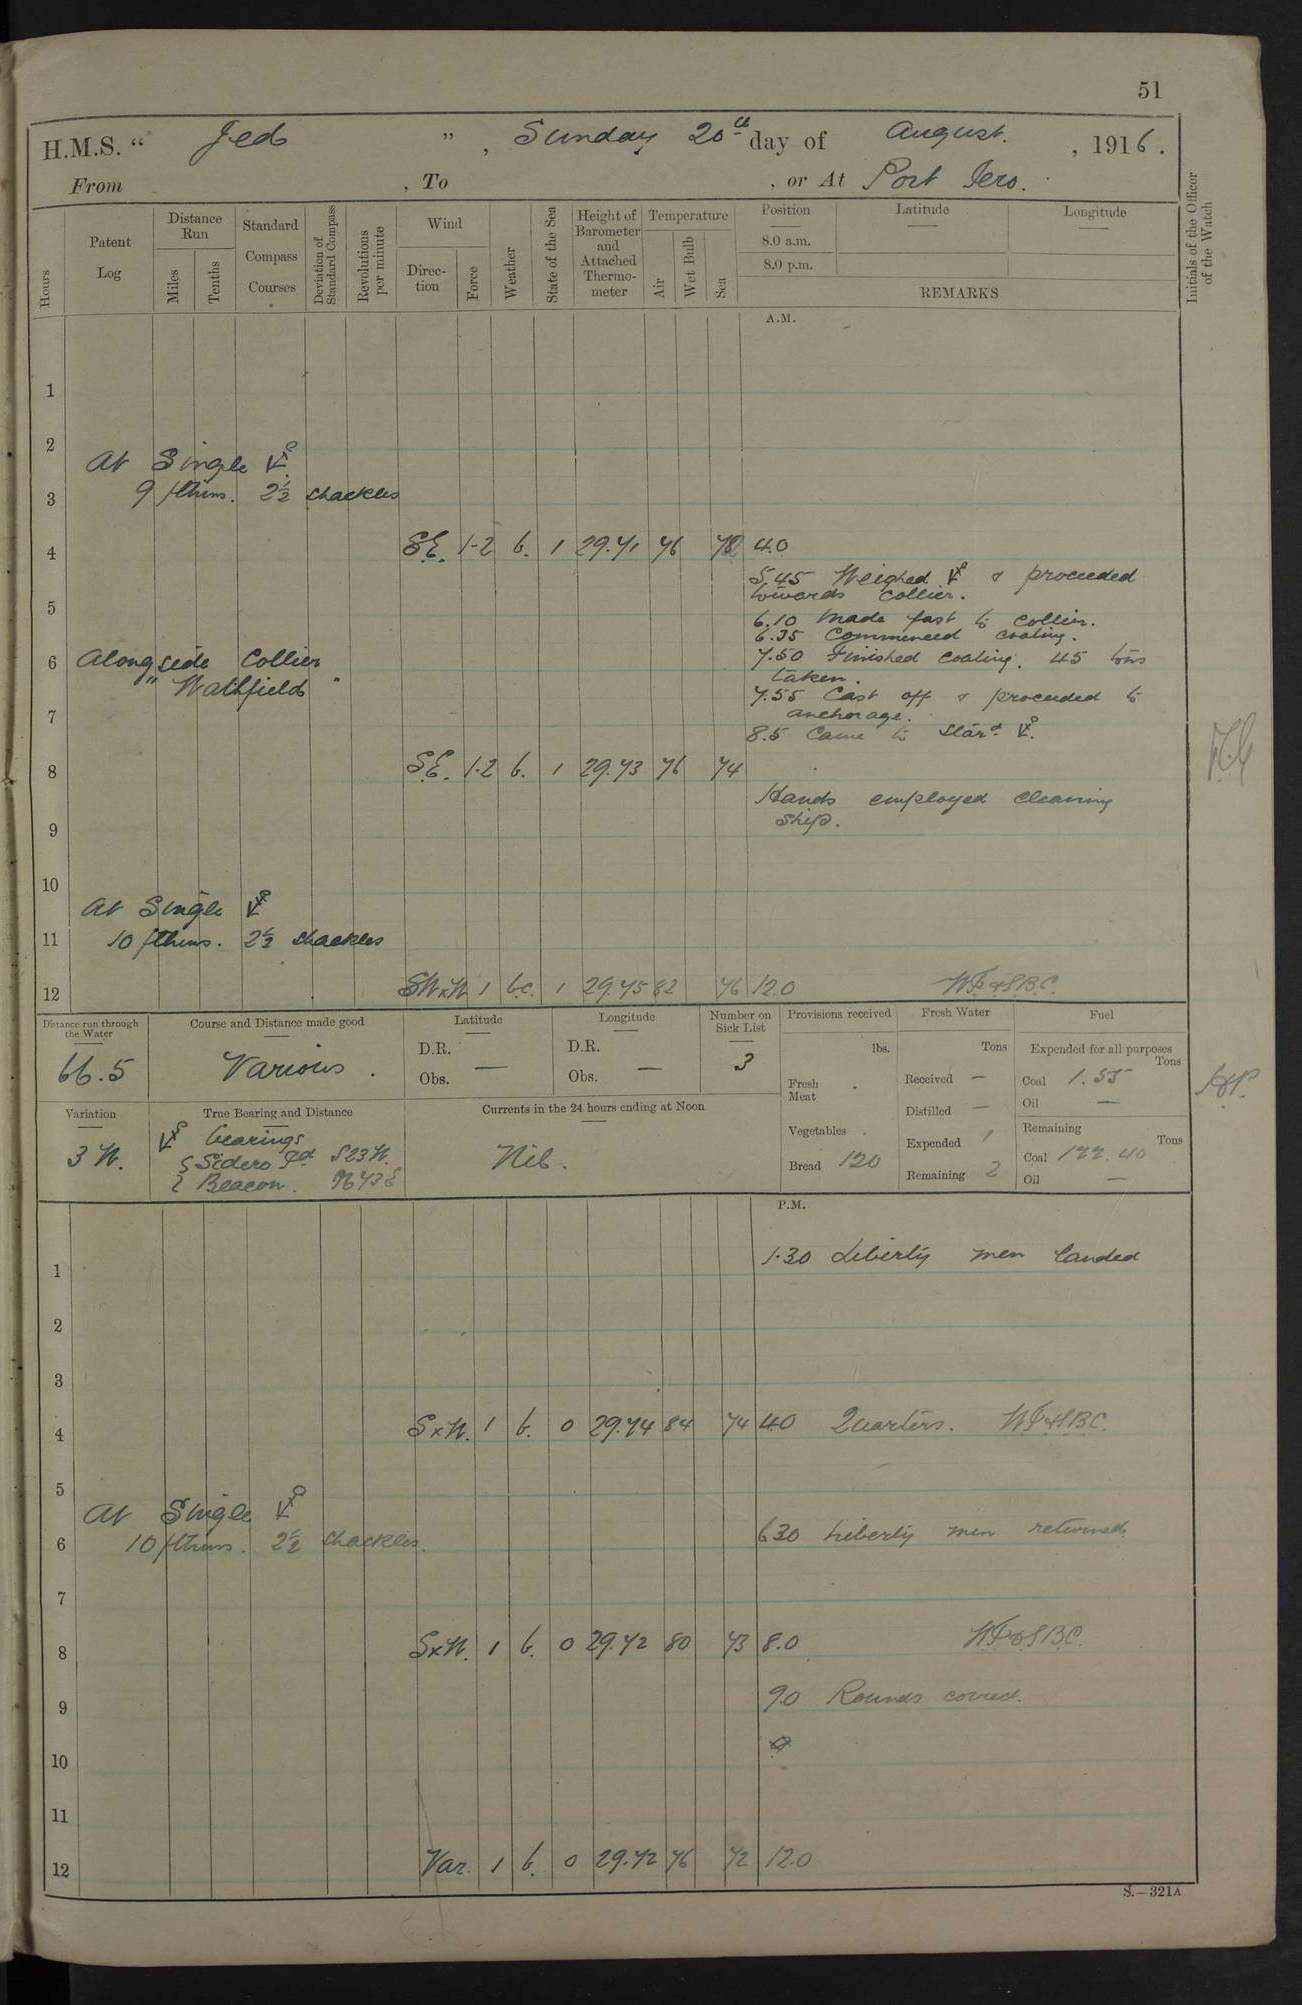 51
H.M.S. " Jed ", Sunday 20th day of August. , 1916.
From , To , or At Port Iero.
Hours
Patent Log
Distance Run
Miles
Tenths
Standard Compass Courses
Deviation of Standard Compass
Revolutions per minute
Wind
Direction
Force
Weather
State of the Sea
Height of Barometer and Attached Thermometer
Temperature
Air
Wet Bulb
Sea
Position
8.0 a.m.
8.0 p.m.
Latitude
Longitude
REMARKS
Initials of the Officer of the Watch
A.M.
1
2
At Single
3 9 fthms. 2½ shackles
4 S.E. 1-2 b. 1 29.71 76 78 4.0
5.45 Weighed & proceeded
towards collier.
5
6.10 Made fast to collier.
6.35 Commenced coaling.
6 Alongside Collier 7.50 Finished coaling. 45 tons
taken.
" Wathfield "
7.55 Cast off & proceeded to
7 anchorage.
8.5 Came to Stard.
8 S.E. 1-2 b. 1 29.73 76 74
Hands employed cleaning
ship.
9
10
At Single
11 10 fthms. 2½ shackles
12 SWxW 1 b.c. 1 29.75 82 76 12.0 
Distance run through the Water
66.5
Course and Distance made good
Various.
Latitude
D.R.
Obs. —
Longitude
D.R.
Obs. —
Number on Sick List
3
Provisions received
lbs.
Fresh Meat .
Vegetables .
Bread 120
Fresh Water
Tons
Received —
Distilled —
Expended 1
Remaining 2
Fuel
Expended for all purposes
Tons
Coal 1.55
Oil —
Remaining
Tons
Coal 122.40
Oil —
Variation
3 W.
True Bearing and Distance
bearings
Sidero Pt S23W.
Beacon.
Currents in the 24 hours ending at Noon
Nil.
P.M.
1.30 Liberty men landed
1
2
3
4 SxW. 1 b. 0 29.74 84 74 4.0 Quarters.
5
At Single
6 10 fthms. 2½ shackles. 6.30 Liberty men returned.
7
8 SxW. 1 b. 0 29.72 80 73 8.0
9 9.0 Rounds correct.
10
11
12 Var. 1 b. 0 29.72 76 72 12.0
S.—321A